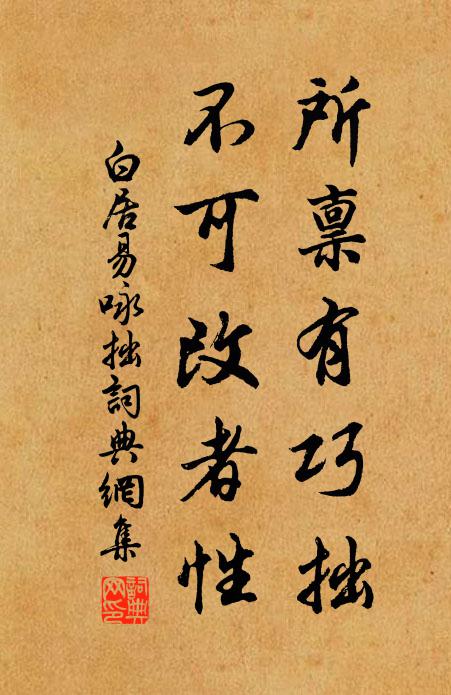 所禀有巧拙
不可改者性
白居易咏拙詞典網集
詞典網印